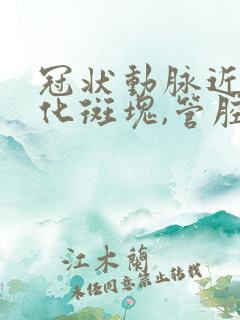 冠状動脉近
化斑塊,管腔
江木蘭
未经同意禁止转载